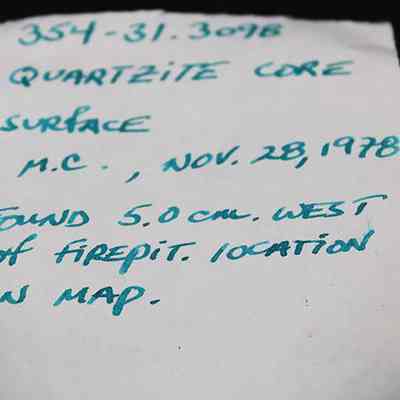 354-31.3098
QUARTZITE CORE
SURFACE
M.C., NOV. 28, 1978
OUND 5.0 cm. WEST
of FIREPIT. LOCATION
N MAP.